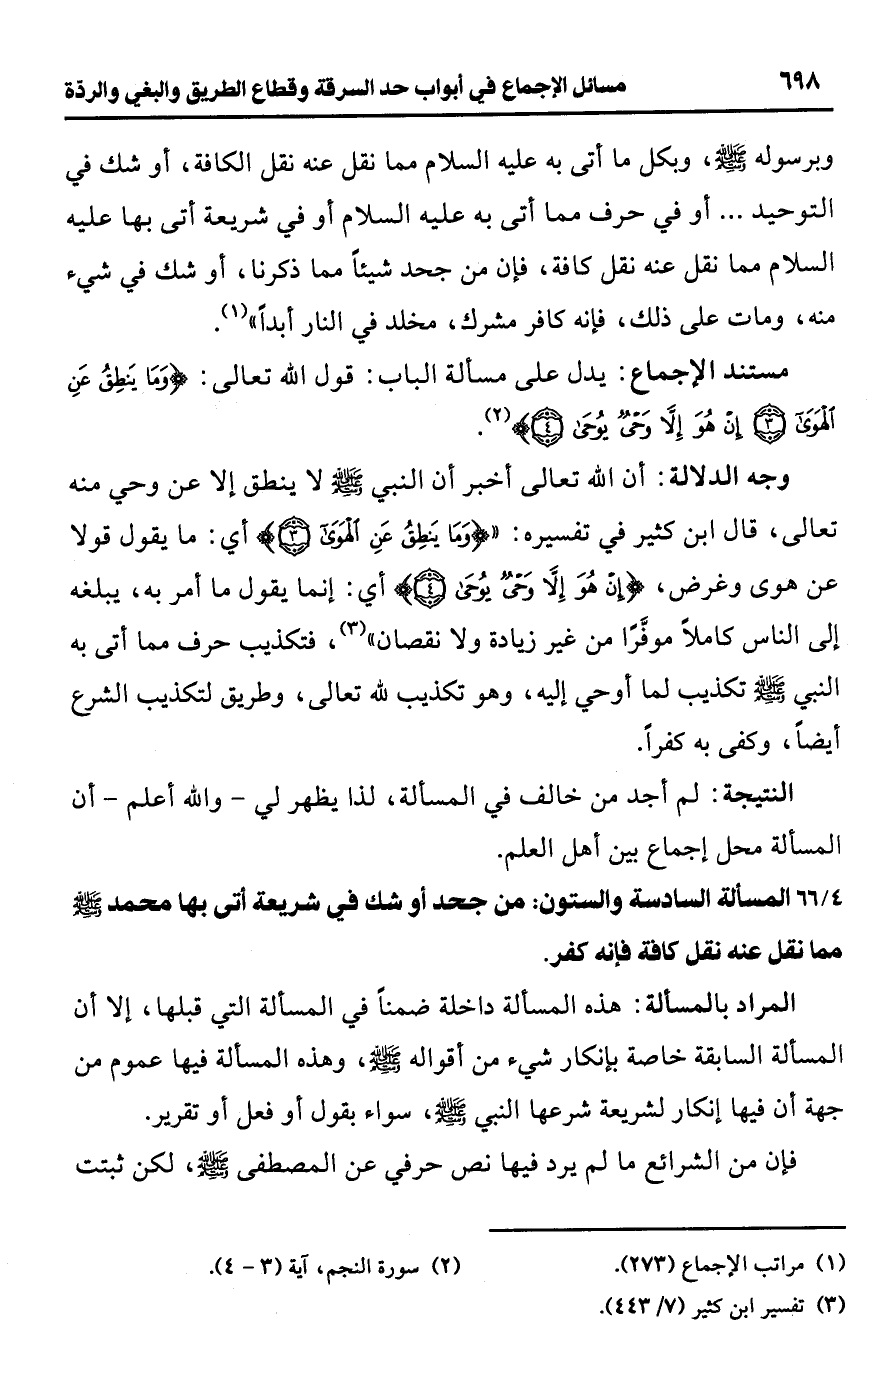 ٦٩٨ مسائل الإجماع في أبواب حد السرقة وقطاع الطريق والبغي والردّة
وبرسوله ﷺ، وبكل ما أتى به عليه السلام مما نقل عنه نقل الكافة، أو شك في
التوحيد ... أو في حرف مما أتى به عليه السلام أو في شريعة أتى بها عليه
السلام مما نقل عنه نقل كافة، فإن من جحد شيئاً مما ذكرنا، أو شك في شيء
منه، ومات على ذلك، فإنه كافر مشرك، مخلد في النار أبداً»(١).
مستند الإجماع: يدل على مسألة الباب: قول الله تعالى: ﴿وَمَا يَنطِقُ عَنِ
ٱلْهَوَىٰٓ ٣ إِنْ هُوَ إِلَّا وَحْىٌ يُوحَىٰ ٤﴾(٢).
وجه الدلالة: أن الله تعالى أخبر أن النبي ﷺ لا ينطق إلا عن وحي منه
تعالى، قال ابن كثير في تفسيره: «﴿وَمَا يَنطِقُ عَنِ ٱلْهَوَىٰٓ ٣﴾ أي: ما يقول قولا
عن هوى وغرض، ﴿إِنْ هُوَ إِلَّا وَحْىٌ يُوحَىٰ ٤﴾ أي: إنما يقول ما أمر به، يبلغه
إلى الناس كاملاً موفَّرًا من غير زيادة ولا نقصان»(٣)، فتكذيب حرف مما أتى به
النبي ﷺ تكذيب لما أوحي إليه، وهو تكذيب لله تعالى، وطريق لتكذيب الشرع
أيضاً، وكفى به كفراً.
النتيجة: لم أجد من خالف في المسألة، لذا يظهر لي - والله أعلم - أن
المسألة محل إجماع بين أهل العلم.
٦٦/٤ المسألة السادسة والستون: من جحد أو شك في شريعة أتى بها محمد ﷺ
مما نقل عنه نقل كافة فإنه كفر.
المراد بالمسألة: هذه المسألة داخلة ضمناً في المسألة التي قبلها، إلا أن
المسألة السابقة خاصة بإنكار شيء من أقواله ﷺ، وهذه المسألة فيها عموم من
جهة أن فيها إنكار لشريعة شرعها النبي ﷺ، سواء بقول أو فعل أو تقرير.
فإن من الشرائع ما لم يرد فيها نص حرفي عن المصطفى ﷺ، لكن ثبتت
(١) مراتب الإجماع (٢٧٣). (٢) سورة النجم، آية (٣ - ٤).
(٣) تفسير ابن كثير (٧/ ٤٤٣).